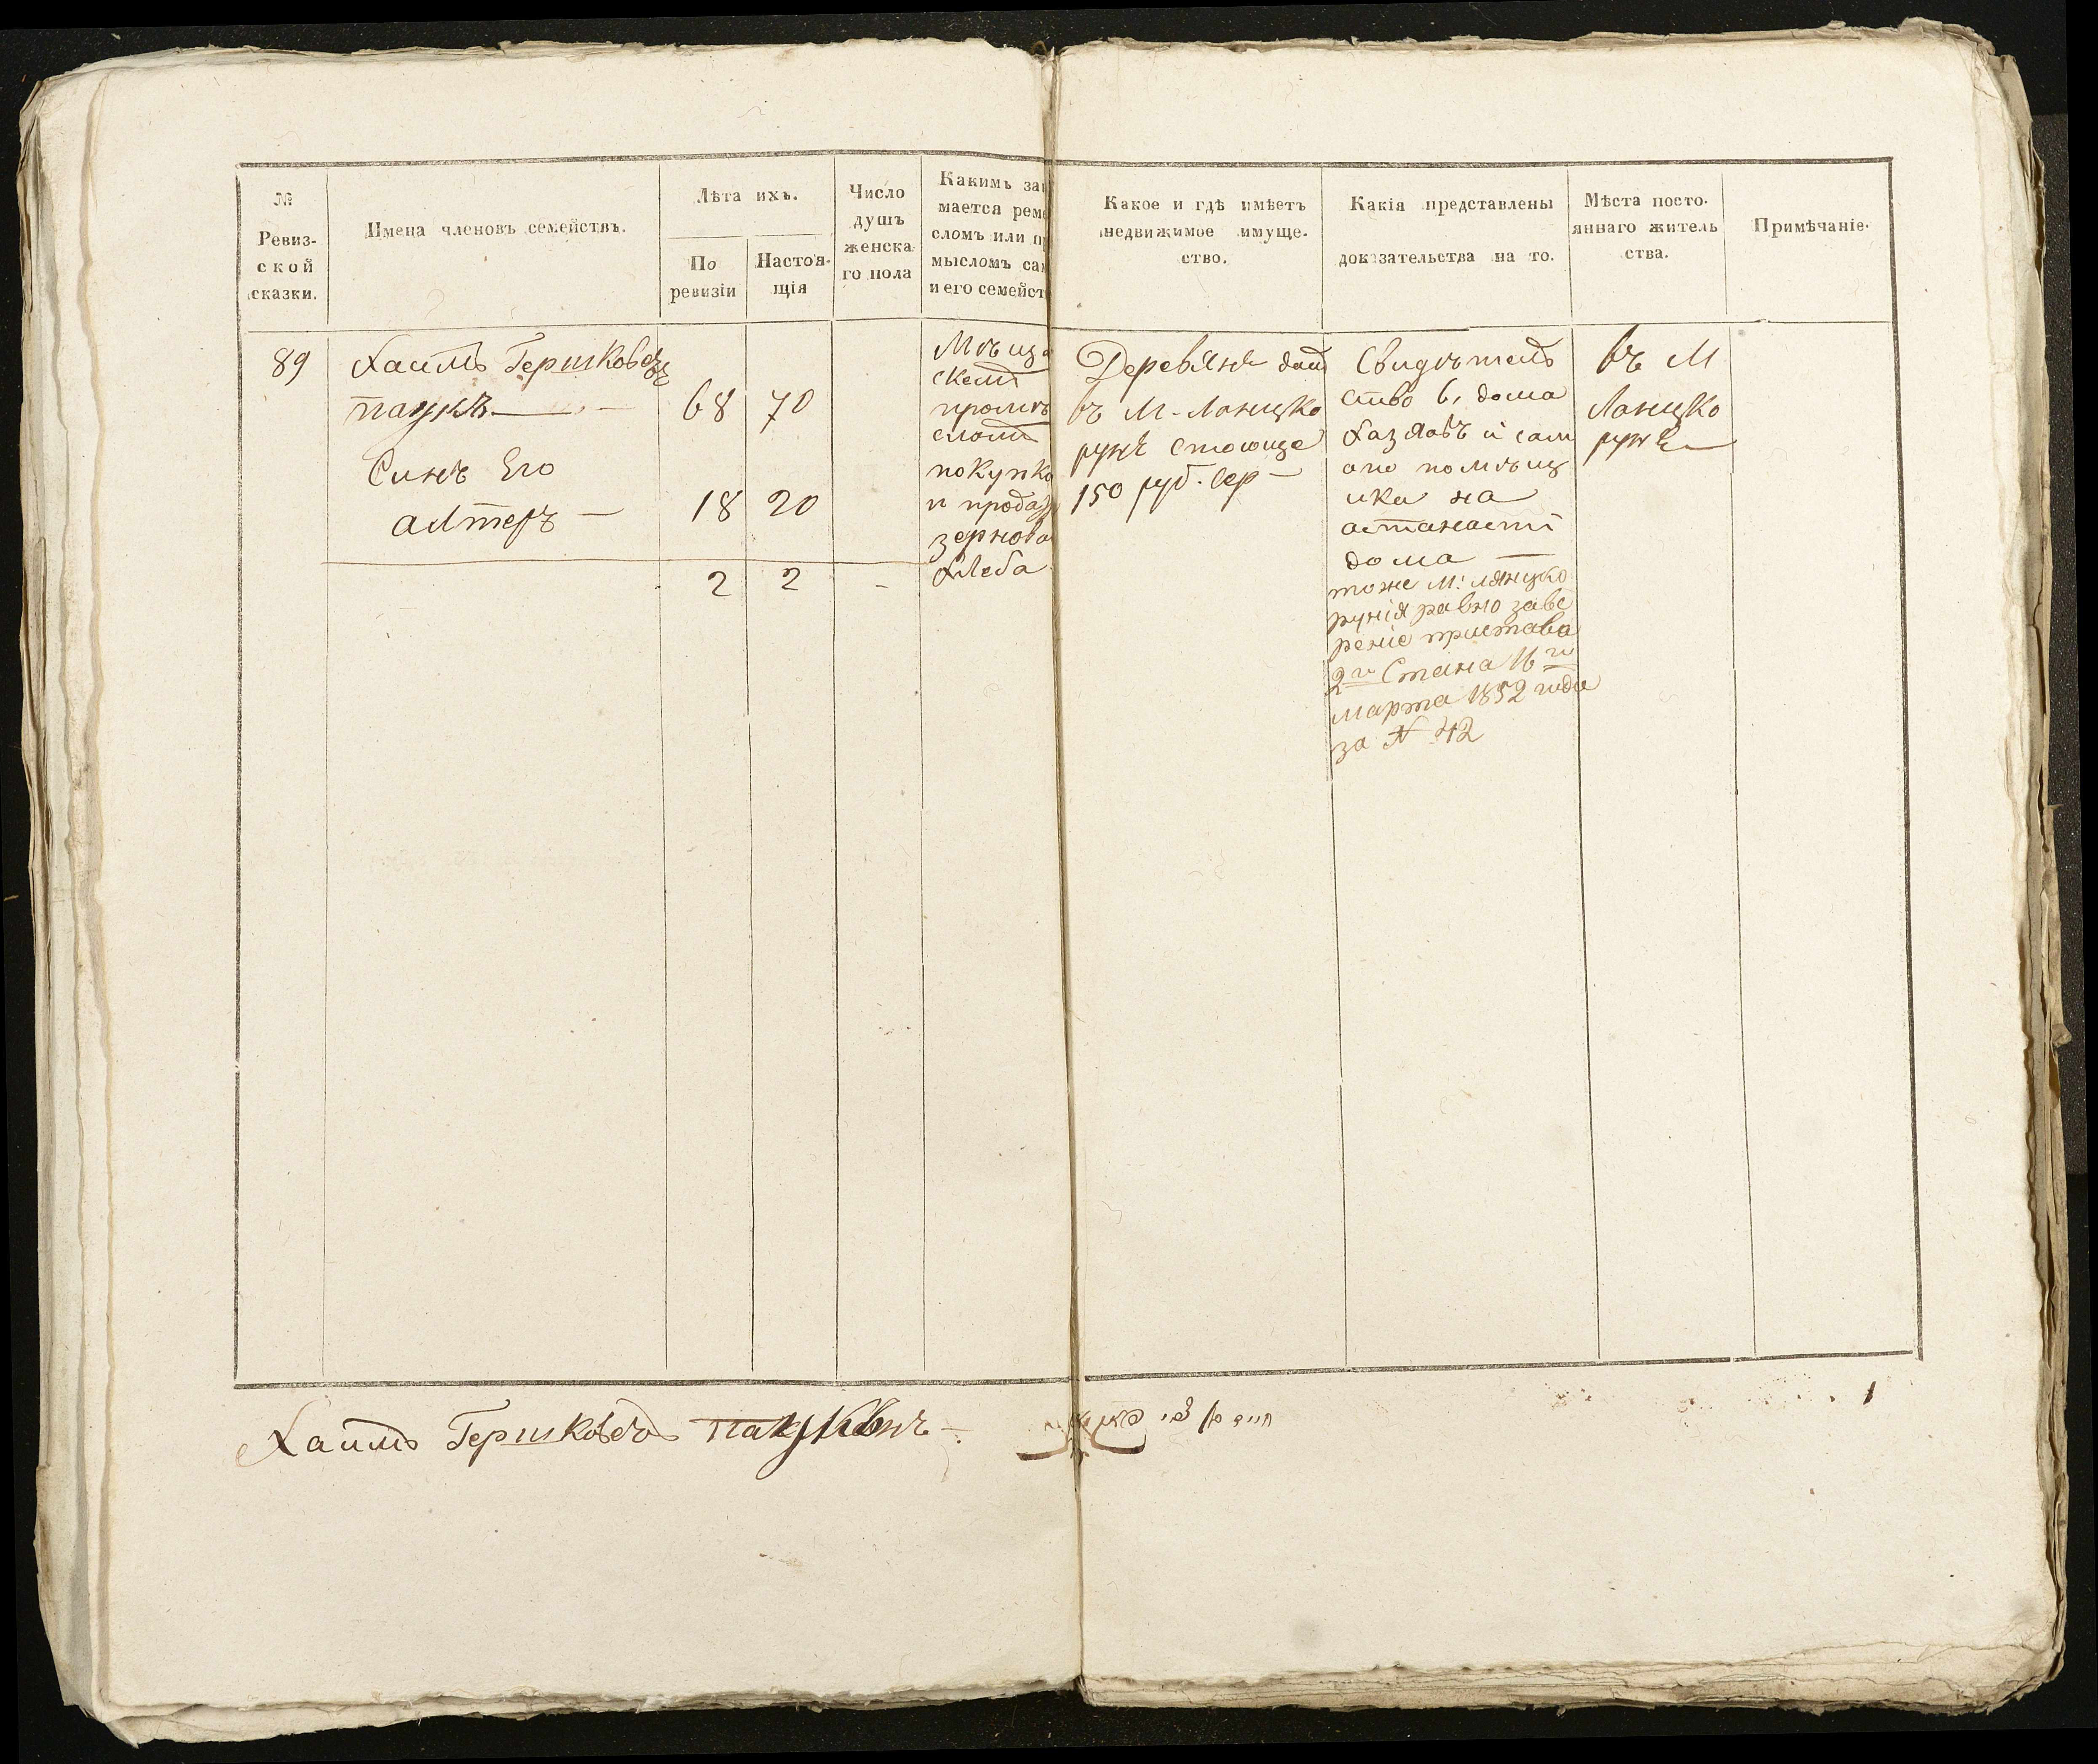 №
Ревиз-
ской
сказки.
Имена членовъ семействъ.
Лѣта ихъ.
По
ревизіи
Настоя-
щія
Число
душъ
женска
го пола
Какимъ за
мается реме
сломъ или п
мысломъ са
и его семейст
Какое и гдѣ имѣетъ
недвижимое имуще-
ство.
Какія представлены
доказательства на то.
Мѣста посто-
яннаго житель
ства.
Примѣчаніе.
89
Хаимъ Гершковъ
паукъ
68 70
Синъ Его
алтеръ
18 20
2 2 -
Мѣща
скемъ
промы
сломъ
покупка
и прода
зернова
хлеба
Деревяне домъ
въ М. Ланцко
рунѣ стоюще
150 руб. сер
Свидѣтель
ство 6, дома
хазяовъ и сам
ого помѣщ
ика на
астаности
дома
тоже м: лянцко
рунія равно заве
рение пристава
2го Стана 16го
марта 1852 года
за № 42
въ М
Ланцко
рунѣ
Хаимъ Гершковъ